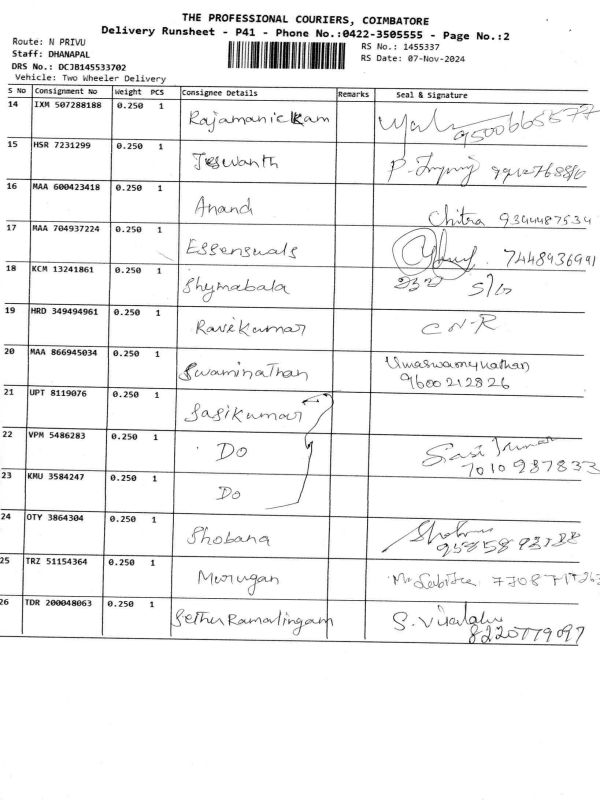 THE PROFESSIONAL COURIERS, COIMBATORE
Delivery Runsheet - P41 - Phone No.:0422-3505555 - Page No.:2
Route: N PRIVU
RS No.: 1455337
Staff: DHANAPAL
RS Date: 07-Nov-2024
DRS No.: DCJB145533702
Vehicle: Two Wheeler Delivery
S No Consignment No Weight PCS Consignee Details Remarks Seal & Signature
14 IXM 507288188 0.250 1 Rajamanickam 9500665577
15 HSR 7231299 0.250 1 Jeswanth P.
16 MAA 600423418 0.250 1 Anand Chitra 9344487534
17 MAA 704937224 0.250 1 Essensuals 7448936991
18 KCM 13241861 0.250 1 Shymabala S/G
19 HRD 349494961 0.250 1 Ravikumar C N-R
20 MAA 866945034 0.250 1 Swaminathan Umaswamynathan
9600212826
21 UPT 8119076 0.250 1 Sasikumar
22 VPM 5486283 0.250 1 Do Sasi Kumar
7010987833
23 KMU 3584247 0.250 1 Do
24 OTY 3864304 0.250 1 Shobana
25 TRZ 51154364 0.250 1 Murugan
26 TDR 200048063 0.250 1 Sethu Ramalingam S.
8220779097